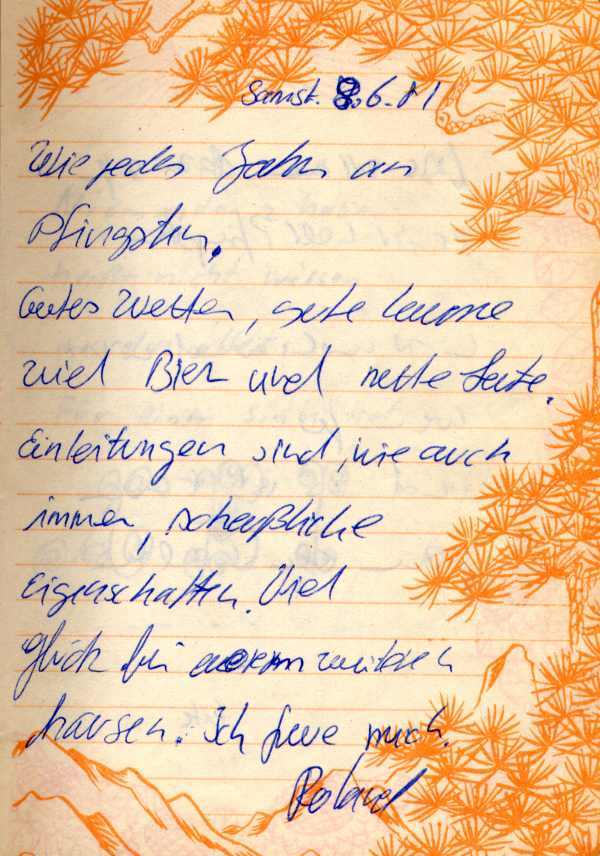 Samst. 8.6.81
Wie jedes Jahr an
Pfingsten.
Gutes Wetter, gute Laune
viel Bier und nette Leute.
Einleitungen sind, wie auch
immer, scheußliche
Eigenschaften. Viel
Glück bei
hausen. Ich freue mich.
Roland